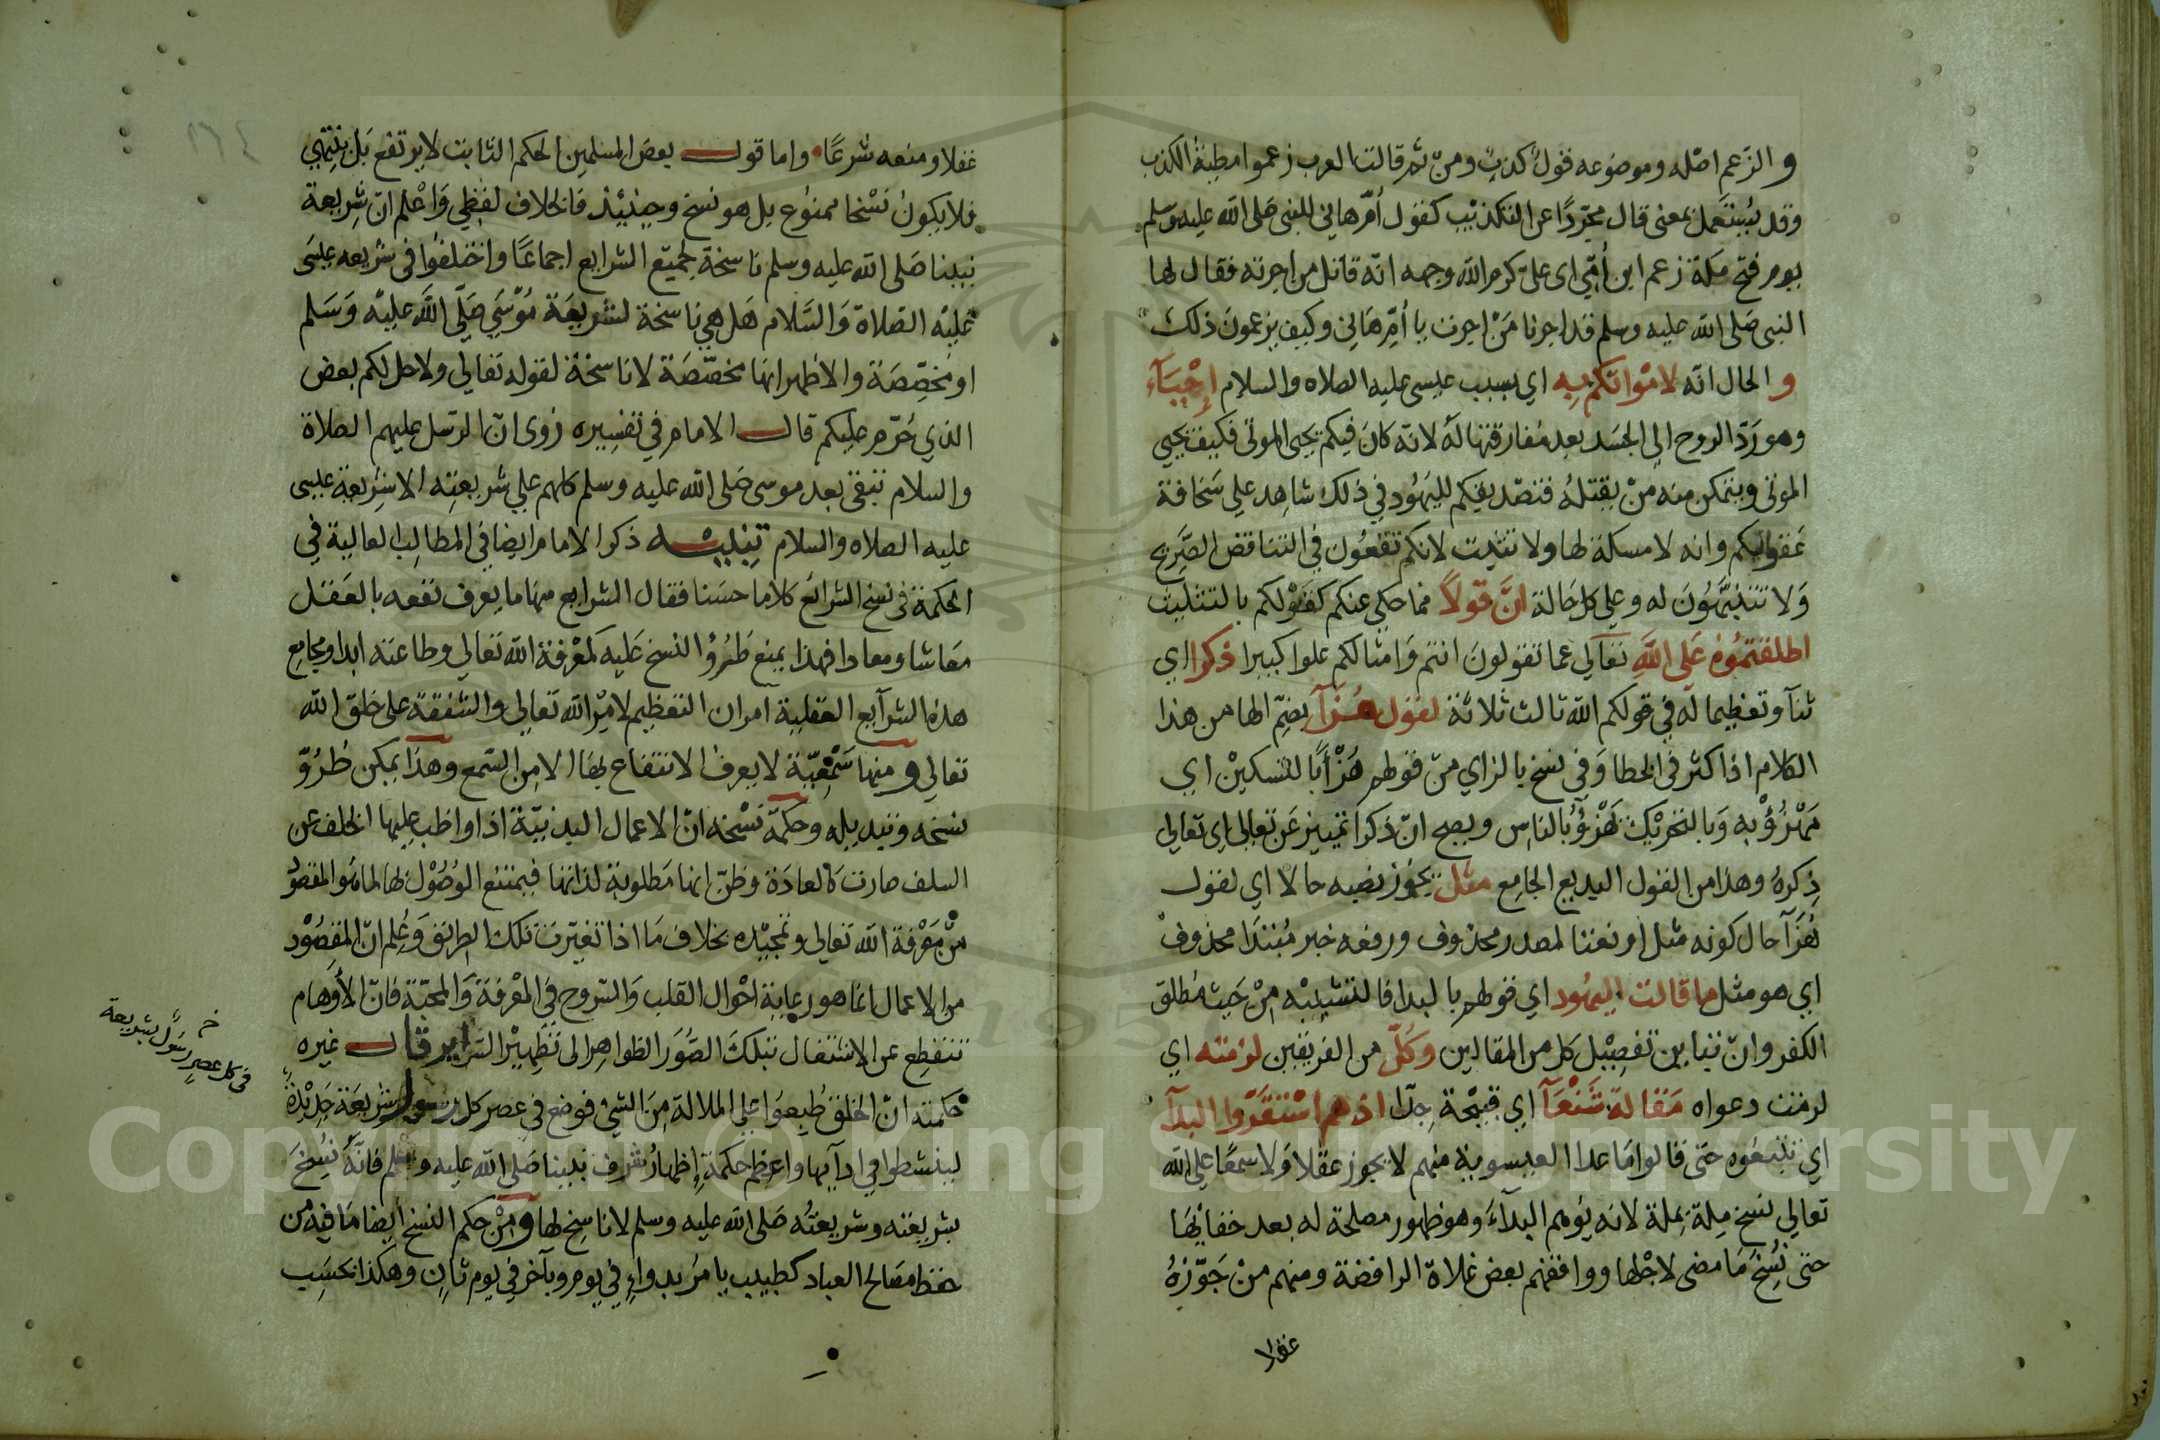 و الزعم اصله وموضوعه قول كذب ومن ثم قالت العرب زعموا مطية الكذب
وقد يستعمل بمعنى قال مجردا عن التكذيب كقول أم هاني للنبي صلى الله عليه وسلم
يوم فتح مكة زعم ابن أمي اى على كرم الله وجهه انه قاتل من اجرته فقال لها
النبى صلى الله عليه وسلم قد اجرنا من اجرت يا أم هاني وكيف يزعمون ذلك
و الحال انه لامواتكم به اي بسبب عيسى عليه الصلاه والسلام إحياء
وهو رد الروح الى الجسد بعد مفارقتها له لانه كان فيكم يحيى الموتى فكيف يحيي
الموتى ويتمكن منه من يقتله فتصديقكم لليهود في ذلك شاهد على سخافة
عقولكم وانه لا مسكة لها ولا تثبت لانكم تقعون في التناقض الصريح
ولا تتنبهون له وعلى كل حالة ان قولا مما حكي عنكم كقولكم بالتثليث
اطلقتموه على الله تعالى عما تقولون انتم وامثالكم علوا كبيرا ذكرا اي
ثنآ وتعظيما له في قولكم الله ثالث ثلاثة لقول هزآ بضم الها من هذا
الكلام اذا كثر في الخطا وفي نسخ بالزاي من قولهم هزأ بالتسكين اي
مهزؤ به وبالتحريك يهزؤ بالناس ويصح ان ذكرا تمييز عن تعالى اى تعالى
ذكره وهذا من القول البديع الجامع مثل يجوز نصبه حالا اي لقول
هزآ حال كونه مثل او نعتا لمصدر محذوف ورفعه خبر مبتدا محذوف
اي هو مثل ما قالت اليهود اي قولهم بالبدا فالتشبيه من حيث مطلق
الكفر وان تباين تفصيل كل من المقالين وكل من الفريقين لزمته اي
لزمت دعواه مقالة شنعآ اي قبيحة جدا اذ هم استقروا البدآ
اي تتبعوه حتى قالوا ما عدا العيسوية منهم لا يجوز عقلا ولا سمعا على الله
تعالى نسخ ملة بملة لانه يوهم البدآء وهو ظهور مصلحة له بعد خفائها
حتى نسخ ما مضى لاجلها ووافقهم بعض غلاة الرافضة ومنهم من جوزه
عقلا
عقلا ومنعه شرعا واما قول بعض المسلمين الحكم الثابت لا يرتفع بل ينتهي
فلا يكون نسخا ممنوع بل هو نسخ وحينئذ فالخلاف لفظي واعلم ان شريعة
نبينا صلى الله عليه وسلم ناسخة لجميع الشرايع اجماعا واختلفوا فى شريعه عيسى
عليه الصلاة والسلام هل هي ناسخة لشريعة موسى صلى الله عليه وسلم
او مخصصة والاظهر انها مخصصة لا ناسخة لقوله تعالى ولاحل لكم بعض
الذي حرم عليكم قال الامام في تفسيره روى ان الرسل عليهم الصلاة
والسلام تبقى بعد موسى صلى الله عليه وسلم كلهم على شريعته الا شريعة عيسى
عليه الصلاه والسلام تنبيه ذكر الامام ايضا في المطالب العالية في
الحكمة فى نسخ الشرائع كلاما حسنا فقال الشرايع منها ما يعرف نفعه بالعقل
معاشا ومعادا فهذا يمنع طرؤ النسخ عليه لمعرفة الله تعالى وطاعته ابدا ومجامع
هذه الشرآيع العقلية امران التعظيم لامر الله تعالى والشفقة على خلق الله
تعالى و منها سمعية لا يعرف الانتفاع بها الا من السمع وهذا يمكن طرؤ
نسخه وتبديله وحكمة نسخه ان الاعمال البدنية اذا واظب عليها الخلف عن
السلف صارت كالعادة وظن انها مطلوبة لذاتها فيمتنع الوصول بها لما هو المقصود
من معرفة الله تعالى وتمجيده بخلاف ما اذا تغيرت تلك الطرائق وعلم ان المقصود
من الاعمال انما هو رعاية احوال القلب والروح في المعرفة والمحبة فان الأوهام
تنقطع عن الاشتغال بتلك الصور الظواهر الى تطهير السراير قال غيره
حكمته ان الخلق طبعوا على الملالة من الشئ فوضع في عصر كل رسول شريعة جديدة
لينشطوا في ادآيها واعظم حكمة إظهار شرف نبينا صلى الله عليه وسلم فانه نسخ
بشريعته وشريعته صلى الله عليه وسلم لا ناسخ لها ومن حكم النسخ أيضا ما فيه من
حفظ مصالح العباد كطبيب يامر بدواء في يوم وبآخر في يوم ثان وهكذا بحسب
خ
في كل عصر رسول بشريعة
Copyright © King Saud University
1957